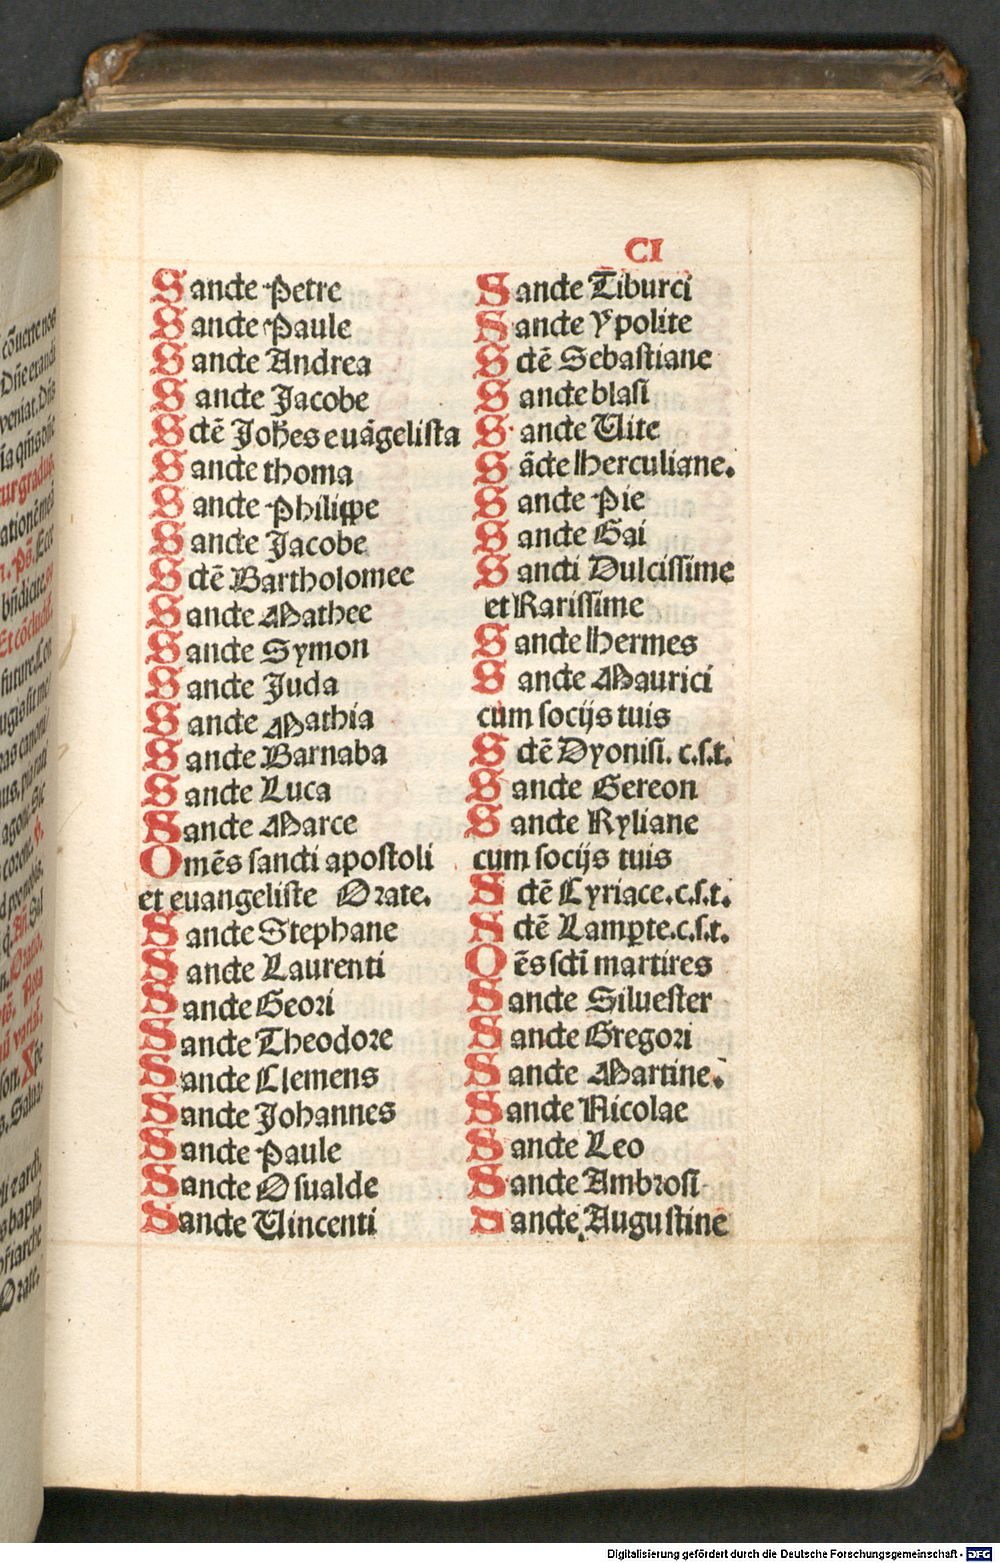 CI
Sancte Petre
Sancte Paule
Sancte Andrea
Sancte Jacobe
Sctē Joh̄es evāgelista
Sancte thoma
Sancte Philippe
Sancte Jacobe
Sctē Bartholomee
Sancte Mathee
Sancte Symon
Sancte Juda
Sancte Mathia
Sancte Barnaba
Sancte Luca
Sancte Marce
Omēs sancti apostoli
et euangeliste Orate.
Sancte Stephane
Sancte Laurenti
Sancte Geori
Sancte Theodore
Sancte Clemens
Sancte Johannes
Sancte Paule
Sancte Osualde
Sancte Vincenti
Sancte Tiburci
Sancte Ypolite
Sctē Sebastiane
Sancte blasi
Sancte Vite
Sācte Herculiane.
Sancte Pie
Sancte Gai
Sancti Dulcissime
et Rarissime
Sancte Hermes
Sancte Maurici
cum socijs tuis
Sctē Dyonisi. c.s.t.
Sancte Gereon
Sancte Kyliane
cum socijs tuis
Sctē Cyriace.c.s.t.
Sctē Lamꝑte.c.s.t.
Oēs sctī martires
Sancte Siluester
Sancte Gregori
Sancte Martine.
Sancte Nicolae
Sancte Leo
Sancte Ambrosi
Sancte Augustine
Digitalisierung gefördert durch die Deutsche Forschungsgemeinschaft - DFG